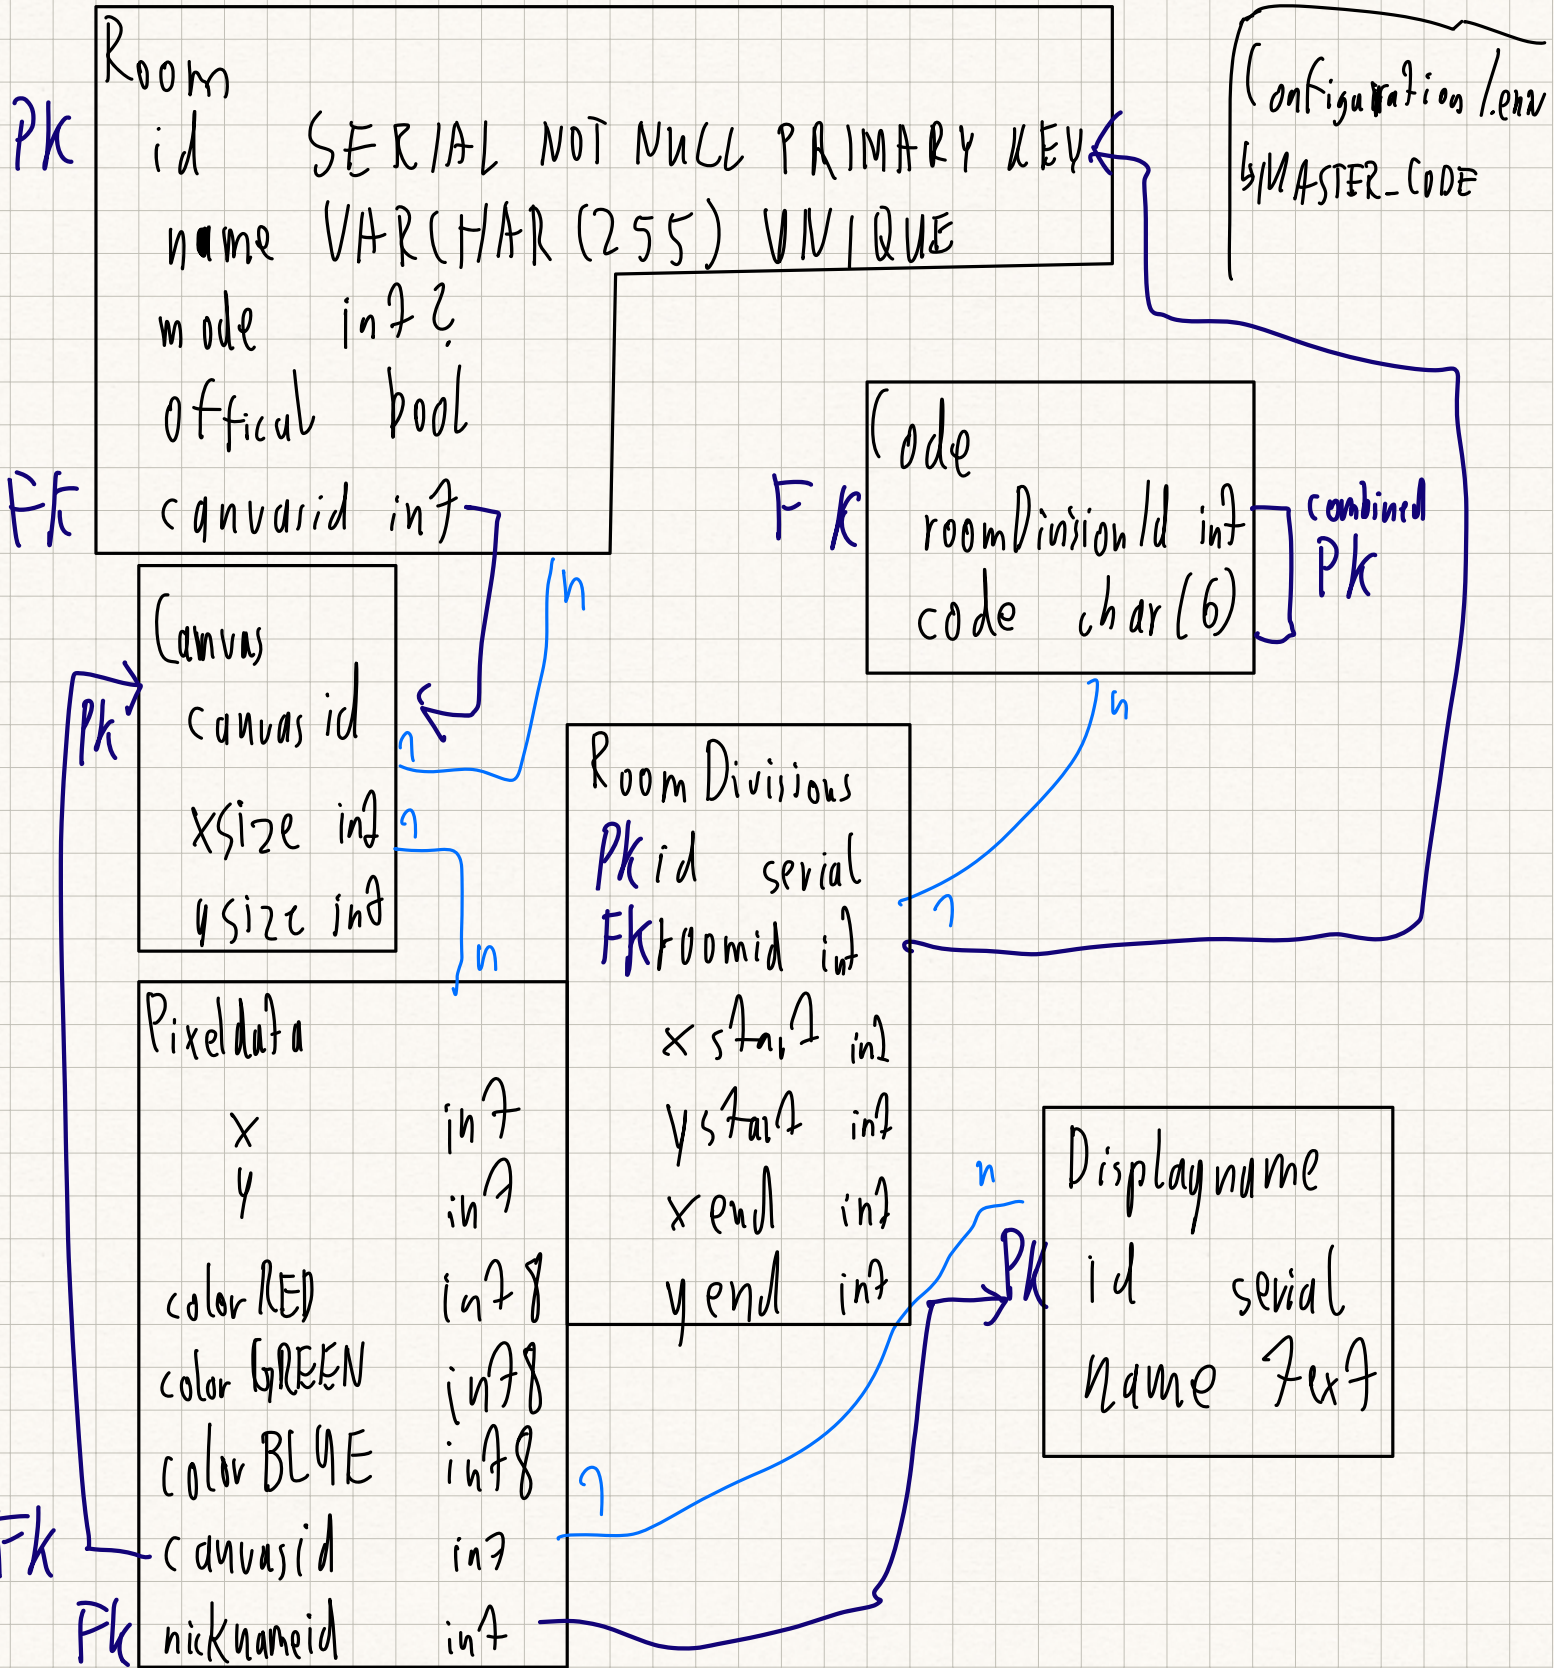 Room
PK id SERIAL NOT NULL PRIMARY KEY
name VARCHAR(255) UNIQUE
mode int?
offical bool
FK canvasid int
Configuration/.env
↳MASTER_CODE
Code
FK roomDivisionId int
code char(6)
combined
PK
Canvas
PK canvasid
xsize int
ysize int
n
1
1
n
n
1
Room Divisions
PK id serial
FK roomid int
xstart int
ystart int
xend int
yend int
Pixeldata
x int
y int
colorRED int8
colorGREEN int8
colorBLUE int8
FK canvasid int
FK nicknameid int
1
n
Displayname
PK id serial
name text